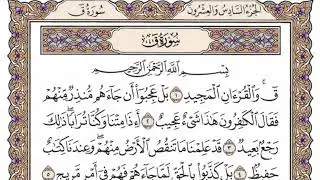 الجزء السادس والعشرون سورة ق
سورة ق
بِسْمِ ٱللَّهِ ٱلرَّحْمَٰنِ ٱلرَّحِيمِ
قٓ ۚ وَٱلْقُرْءَانِ ٱلْمَجِيدِ ١ بَلْ عَجِبُوٓا۟ أَن جَآءَهُم مُّنذِرٌ مِّنْهُمْ
فَقَالَ ٱلْكَٰفِرُونَ هَٰذَا شَىْءٌ عَجِيبٌ ٢ أَءِذَا مِتْنَا وَكُنَّا تُرَابًا ۖ ذَٰلِكَ
رَجْعٌۢ بَعِيدٌ ٣ قَدْ عَلِمْنَا مَا تَنقُصُ ٱلْأَرْضُ مِنْهُمْ ۖ وَعِندَنَا كِتَٰبٌ
حَفِيظٌۢ ٤ بَلْ كَذَّبُوا۟ بِٱلْحَقِّ لَمَّا جَآءَهُمْ فَهُمْ فِىٓ أَمْرٍ مَّرِيجٍ ٥